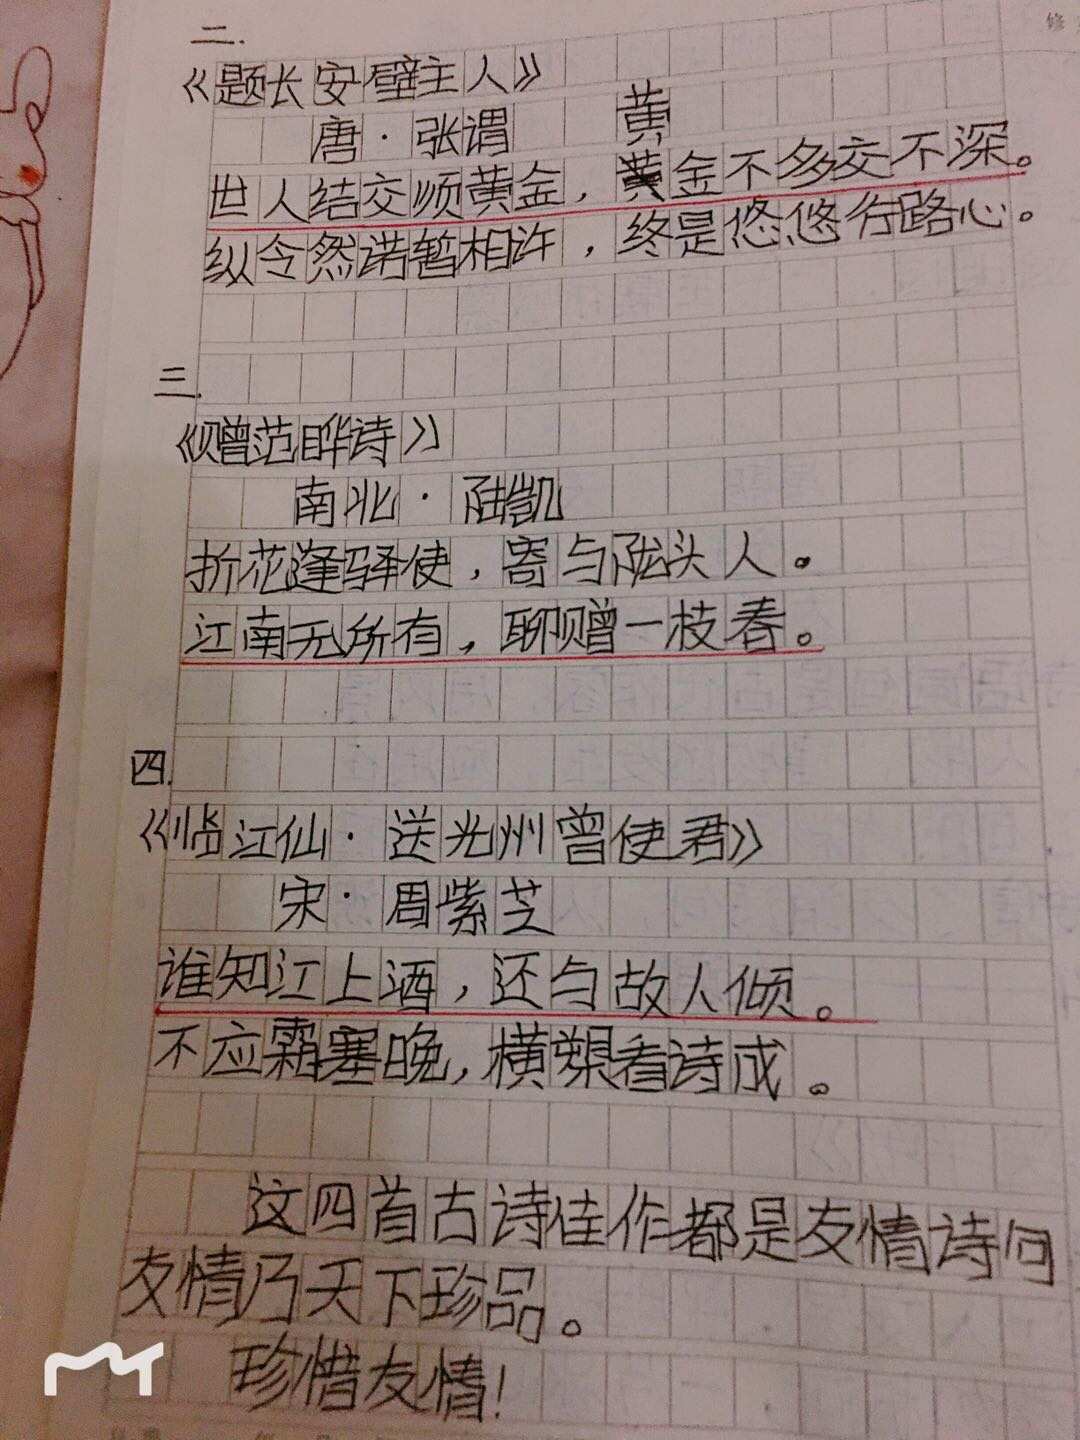 二.
《题长安壁主人》
唐·张谓
黄
世人结交顺黄金，黄金不多交不深。
纵令然诺暂相许，终是悠悠行路心。
三.
《赠范晔诗》
南北·陆凯
折花逢驿使，寄与陇头人。
江南无所有，聊赠一枝春。
四.
《临江仙·送光州曾使君》
宋·周紫芝
谁知江上酒，还与故人倾。
不应霜塞晚，横槊看诗成。
这四首古诗佳作都是友情诗句
友情乃天下珍品。
珍惜友情!
修